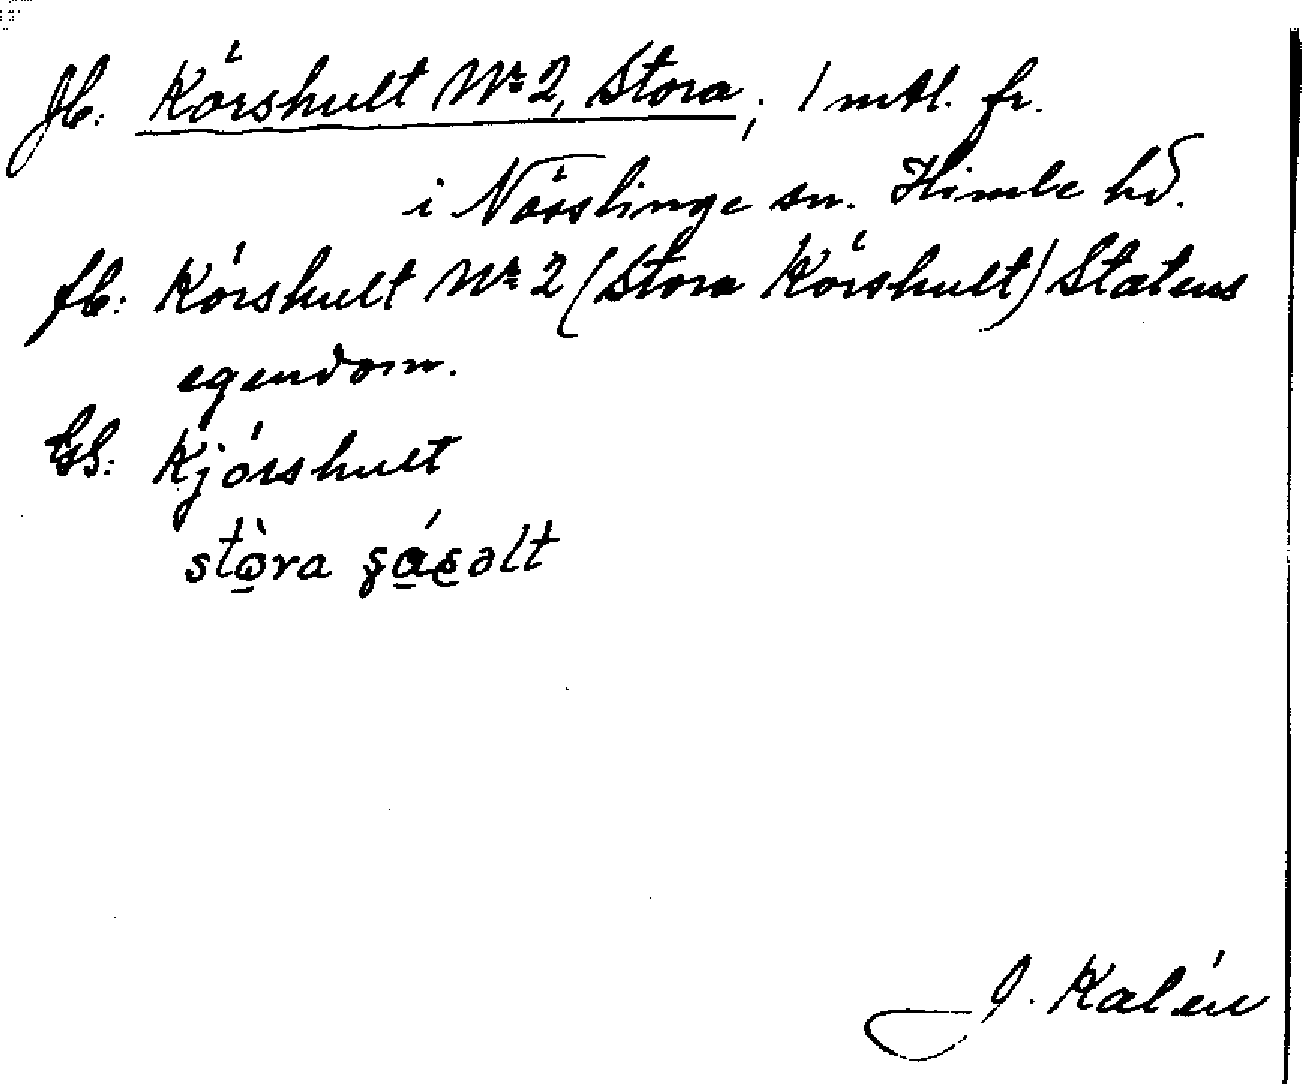 Jb: Körshult Nr 2, Stora; 1 mtl. fr.
i Nösslinge sn. Himle hd.
fb: Körshult Nr 2 (Stora Körshult) Statens
egendom.
GS: Kjörshult
stòra
J. Kalén